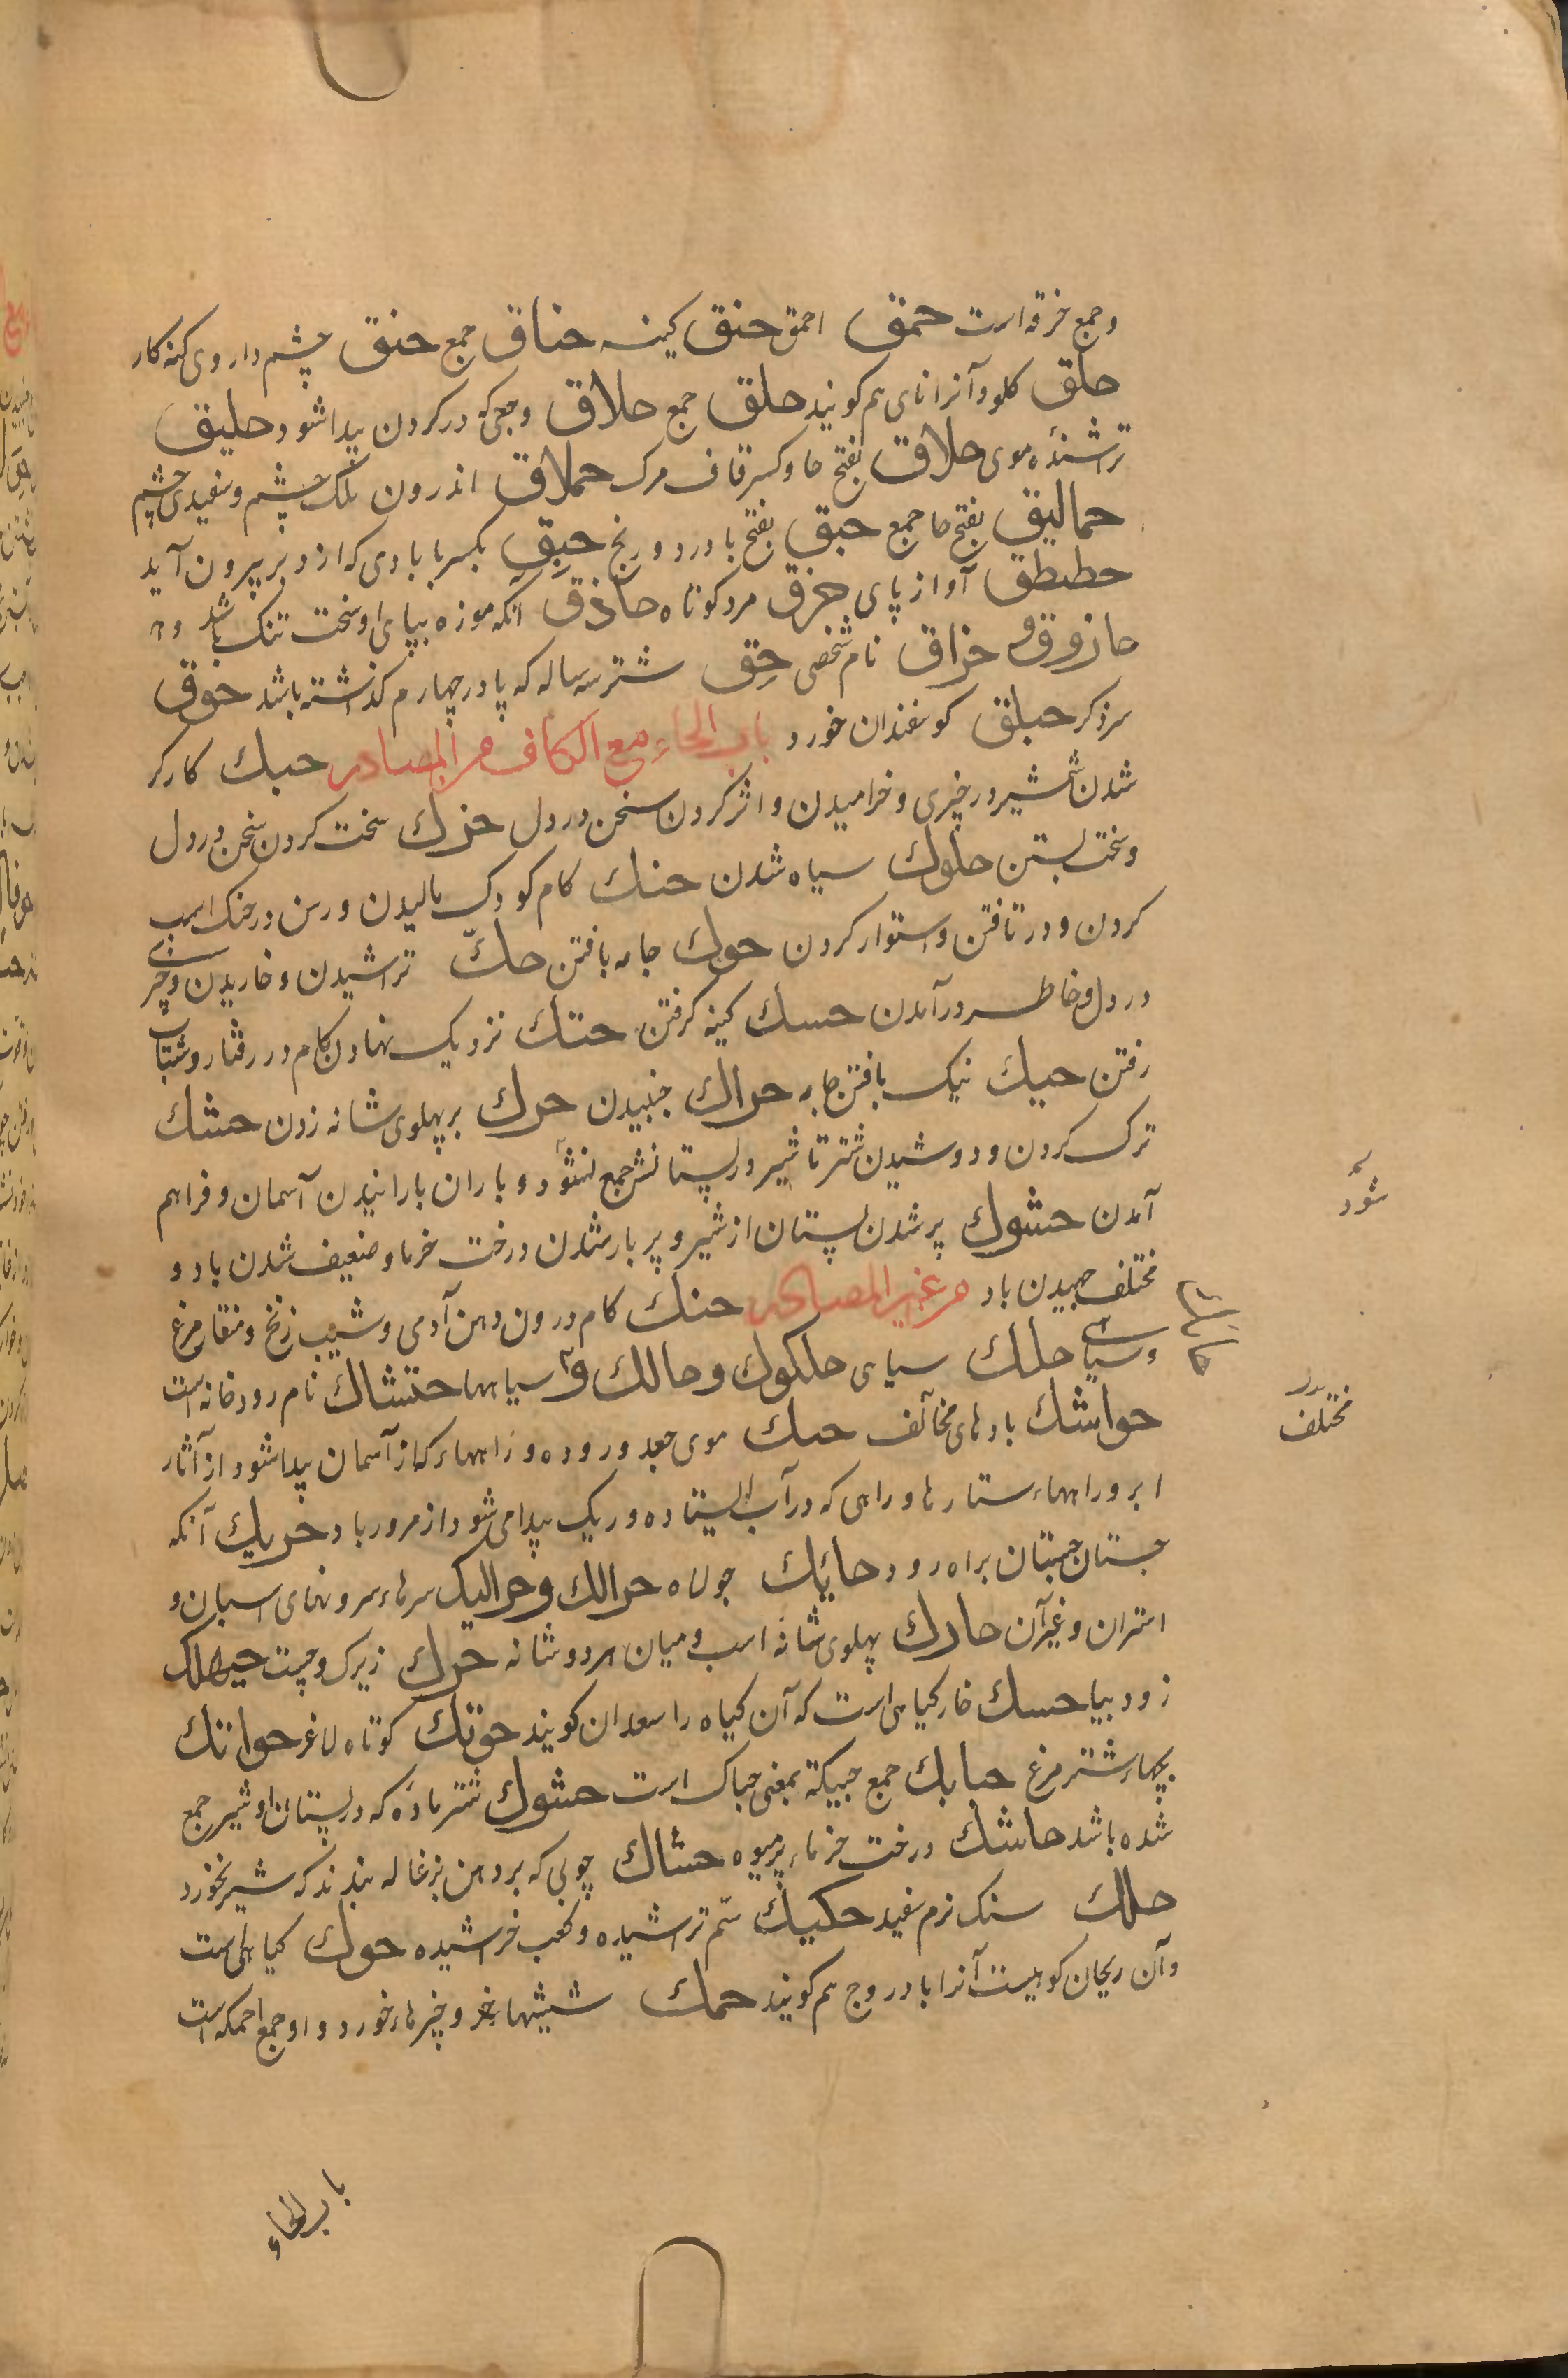 وجمع خرقه است حمق احمق حنق کینه حناق جمع حنق چشم دار وی کینه کار
حلق کلو وآنرا نای هم کویند حلق جمع حلاق وجعی که در کردن پیدا شود حلیق
تراشندهٔ موی حلاق بفتح حا وکسر قاف مرک حملاق اندرون پلک چشم وسفیدی چشم
حمالیق بفتح حا جمع حبق بفتح با درد ورنج حبِق بکسر با بادی که از دبر بیرون آید
حطبطق آواز پای حزق مرد کوتاه حاذق آنکه موزه بپای او سخت تنک باشد
حازوق و حزاق نام شخصی حِق شتر سه ساله که پا در چهارم کذاشته باشد حوق
سر ذکر حبلق کوسفندان خورد باب الحاء مع الکاف من المصادر حبک کارکر
شدن شمشیر در چیزی وخرامیدن واثر کردن سخن در دل حزک سخت کردن سخن در دل
وسخت بستن حلوک سیاه شدن حنک کام کودک مالیدن ورسن در حنک اسب
کردن ودر تافتن واستوار کردن حوک جامه بافتن حکّ تراشیدن وخاریدن وچیزی
در دل وخاطر درآمدن حسک کینه کرفتن حتک نزدیک نهادن کام در رفتار وشتاب
رفتن حیک نیک بافتن جامه حراک جنبیدن حرک بر پهلوی شانه زدن حشک
ترک کردن ودوشیدن شتر تا شیر در پستانش جمع نشود وباران بارانیدن آسمان وفراهم
آمدن حشوک پر شدن پستان از شیر وپر بار شدن درخت خرما وضعیف شدن باد و
مختلف جهیدن باد من غیر المصادر حنک کام درون دهن آدمی وشیب زنخ ومنقار مرغ
وسیاهی حلک سیاهی حلکوک وحالک سیاهها حتشاک نام رودخانه است
حواشک بادهای مخالف حبک موی جعد وروده وراهها که از آسمان پیدا شود از آثار
ابر وراهها ستارها وراهی که در آب ایستاده وریک پیدا می شود از مرور باد حریک آنکه
جستان جستان براه رود حائک جولاه حرالک وحرالیک سرها سرونهای اسبان و
استران وغیر آن حارک پهلوی شانه اسب ومیان هر دو شانه حرک زیرک وچست حیهلک
زود بیا حسک خار کیاهی است که آن کیاه را سعدان کویند حوتک کوتاه لاغر حواتک
بچهاء شتر مرغ حبابک جمع حبیکة بمعنی حباک است حشوک شتر ماده که در پستان او شیر جمع
شده باشد حاشک درخت خرماء پر میوه حشاک چوبی که بر دهن بزغاله بندند که شیر نخورد
حلک سنک نرم سفید حکیک سُم تراشیده وکعب خراشیده حوک کیاهی است
وآن ریحان کوهیست آنرا بادروج هم کویند حمک شپشهاء خرد وچیزهاء خورد واو جمع احمکه است
شود
مختلف
باب الحاء